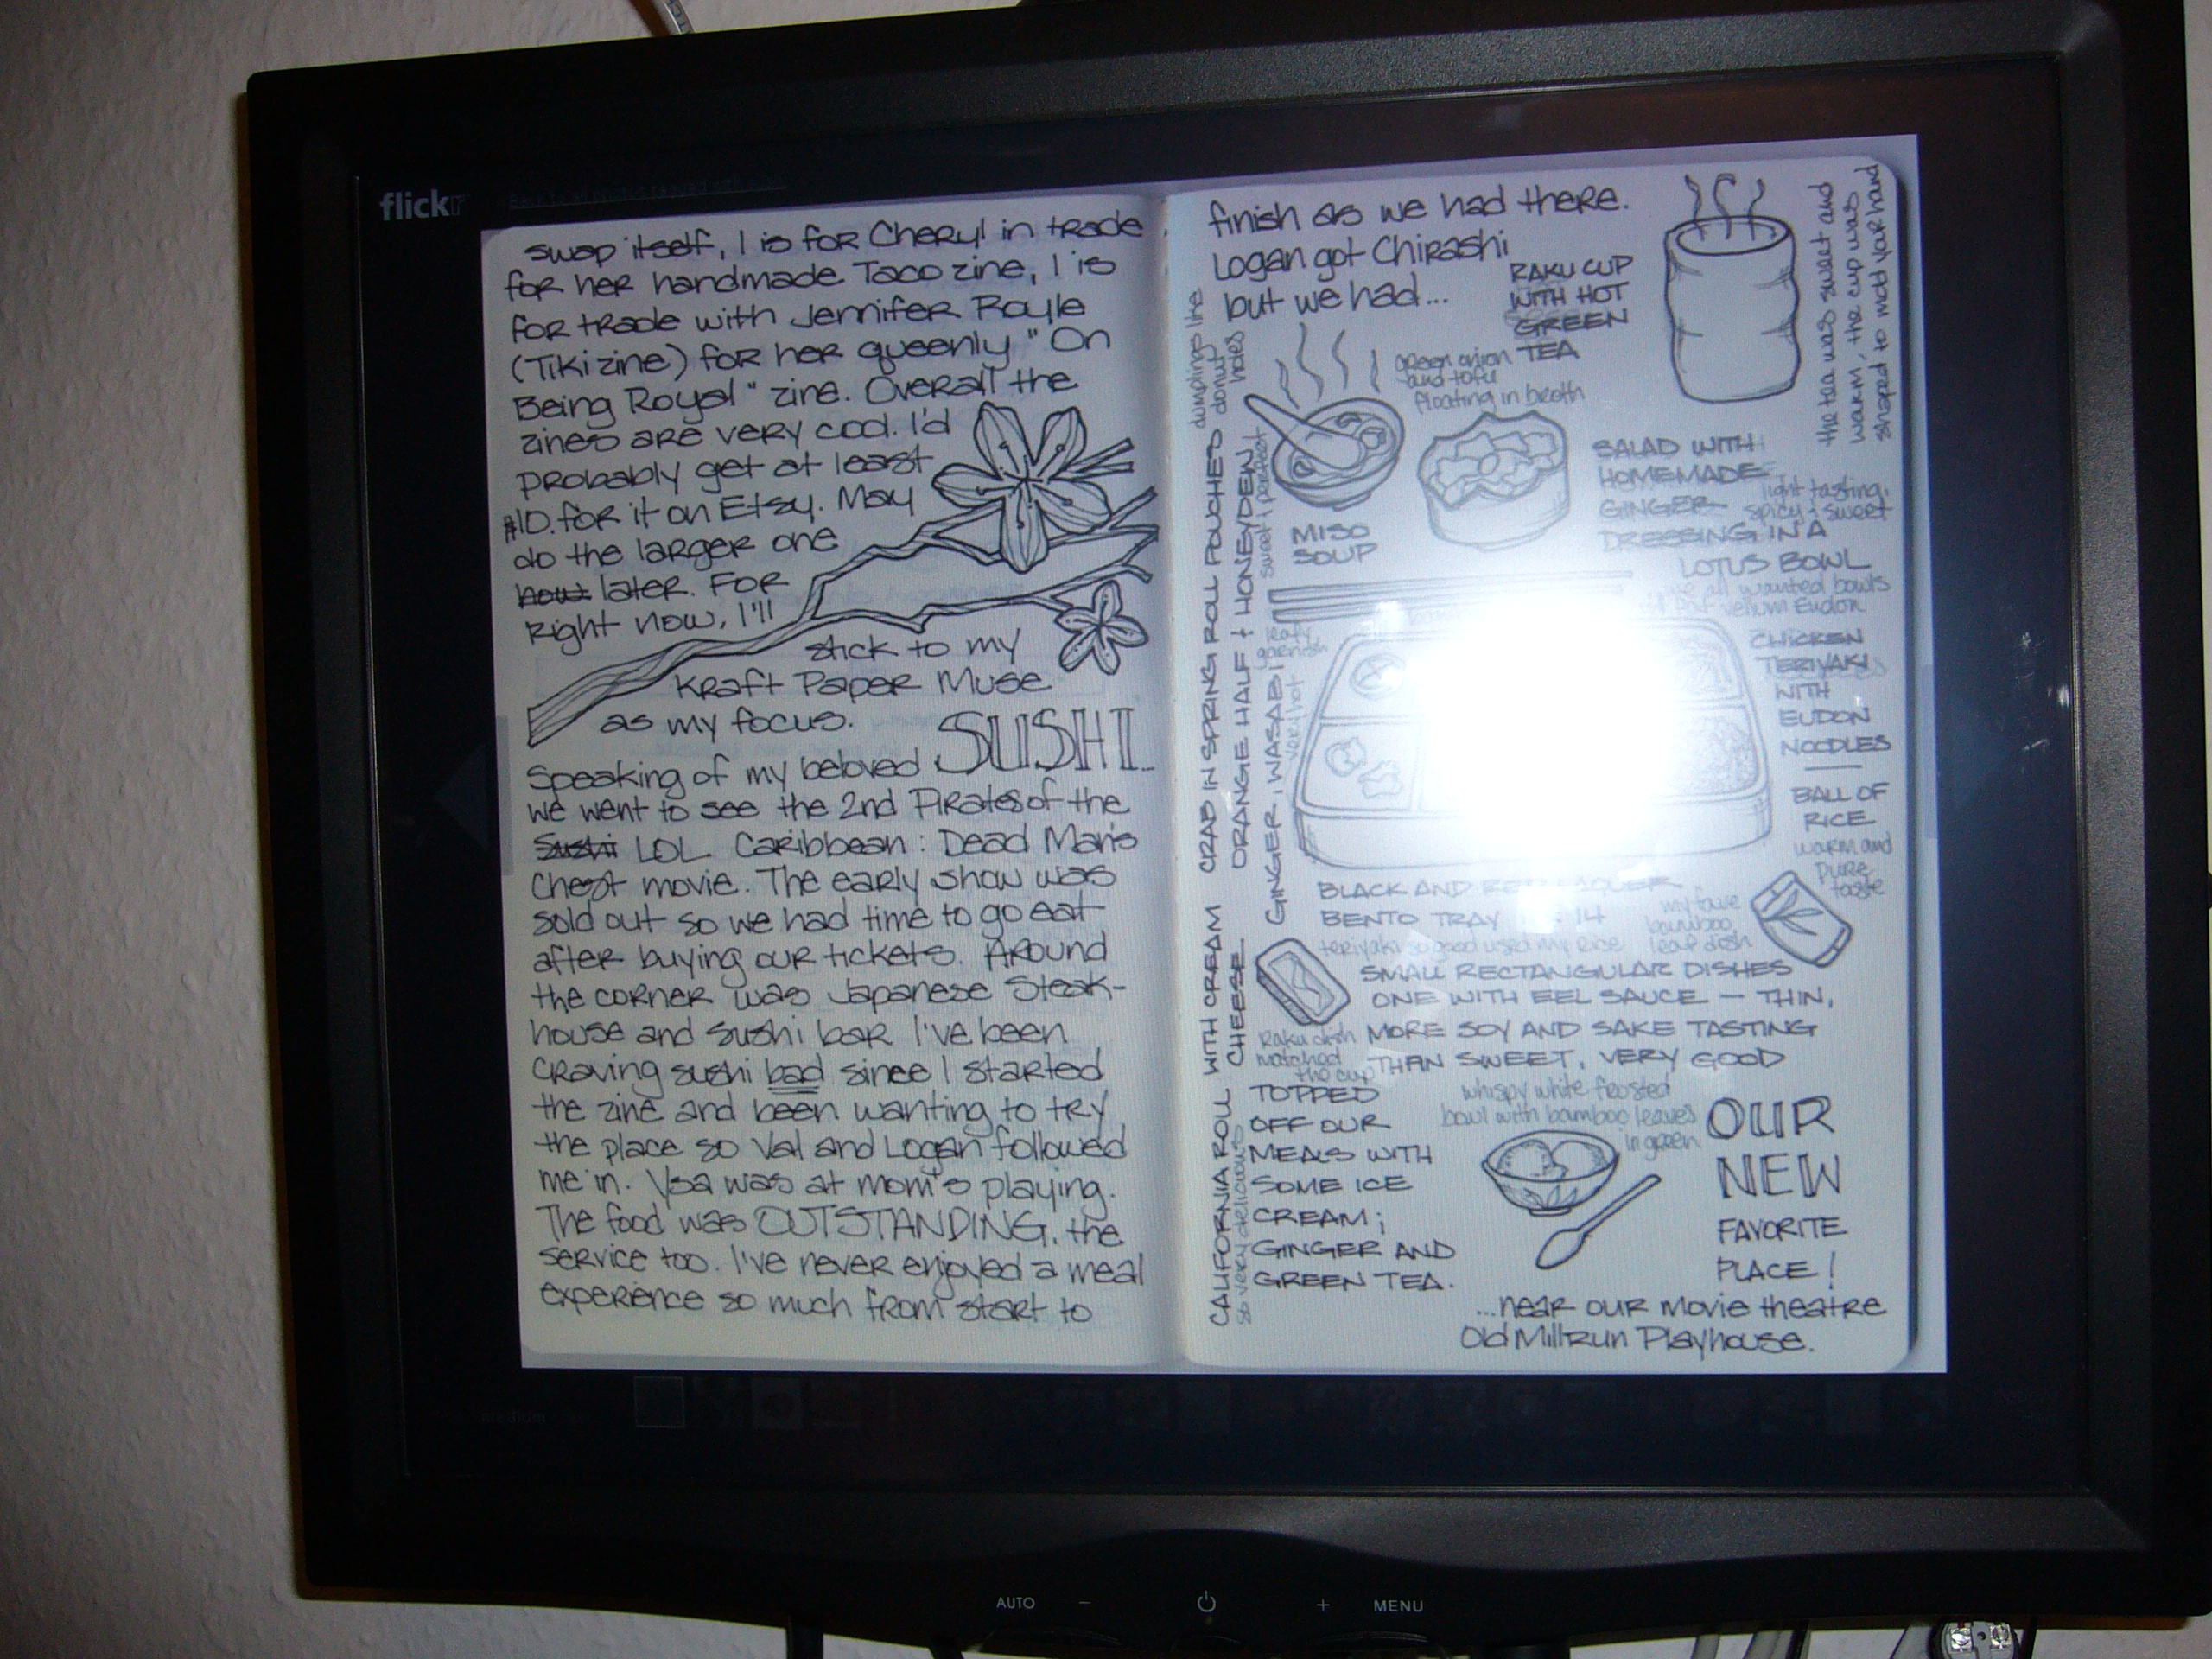 flickr
swap itself, 1 is for Cheryl in trade
for her handmade Taco zine, 1 is
for trade with Jennifer Royle
(Tiki zine) for her queenly "On
Being Royal" zine. Overall the
zines are very cool. I'd
probably get at least
$10. for it on Etsy. May
do the larger one
now later. For
right now, I'll
stick to my
Kraft Paper Muse
as my focus.
Speaking of my beloved SUSHI...
we went to see the 2nd Pirates of the
Sushi LOL Caribbean: Dead Man's
Chest movie. The early show was
sold out so we had time to go eat
after buying our tickets. Around
the corner was Japanese Steak-
house and sushi bar I've been
craving sushi bad since I started
the zine and been wanting to try
the place so Val and Logan followed
me in. Ysa was at mom's playing.
The food was OUTSTANDING. the
service too. I've never enjoyed a meal
experience so much from start to
finish as we had there.
Logan got Chirashi
but we had...
RAKU CUP
WITH HOT
GREEN
TEA
the tea was sweet and
warm, the cup was
shaped to mold your hand
green onion
and tofu
floating in broth
MISO
SOUP
SALAD WITH
HOMEMADE
GINGER
DRESSING IN A
LOTUS BOWL
light tasting,
spicy + sweet
all wanted bowls
dumplings like
donut
holes
CALIFORNIA ROLL WITH CREAM CRAB IN SPRING ROLL POUCHES
CHEESE ORANGE HALF + HONEYDEW
so very delicious
sweet + perfect
GINGER, WASABI
very hot
leafy
garnish
CHICKEN
TERIYAKI
WITH
EUDON
NOODLES
BALL OF
RICE
warm and
pure
taste
BLACK AND RED LAQUER
BENTO TRAY 14
teriyaki so good used my rice
my fave
bamboo
leaf dish
SMALL RECTANGULAR DISHES
ONE WITH EEL SAUCE — THIN,
MORE SOY AND SAKE TASTING
THAN SWEET, VERY GOOD
Raku dish
matched
the cup
TOPPED
OFF OUR
MEALS WITH
SOME ICE
CREAM;
GINGER AND
GREEN TEA.
whispy white frosted
bowl with bamboo leaves
in green
OUR
NEW
FAVORITE
PLACE!
...near our movie theatre
Old Mill Run Playhouse.
AUTO − + MENU